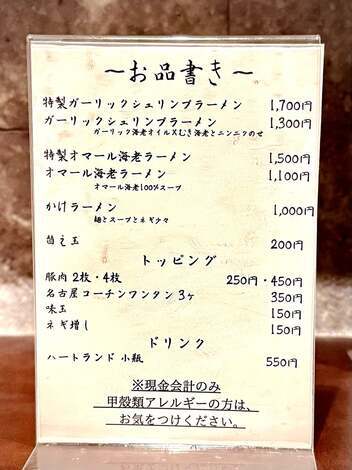 ～お品書き～
特製ガーリックシュリンプラーメン 1,700円
ガーリックシュリンプラーメン 1,300円
ガーリック海老オイルXむき海老とニンニクのせ
特製オマール海老ラーメン 1,500円
オマール海老ラーメン 1,100円
オマール海老100%スープ
かけラーメン 1,000円
麺とスープとネギ少々
替え玉 200円
トッピング
豚肉2枚・4枚 250円・450円
名古屋コーチンワンタン3ヶ 350円
味玉 150円
ネギ増し 150円
ドリンク
ハートランド 小瓶 550円
※現金会計のみ
甲殻類アレルギーの方は、
お気をつけください。